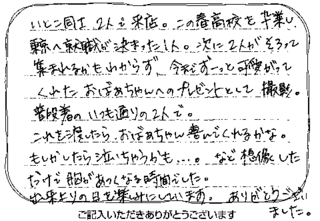 いとこ同士、2人で来店。この春高校を卒業し、
東京へ就職が決まった1人。次に2人がそろって
集まれるかもわからず、今までずーっと可愛がって
くれたおばあちゃんへのプレゼントとして撮影。
普段着のいつも通りの2人で。
これを渡したら、おばあちゃん喜んでくれるかな。
もしかしたら泣いちゃうかも…。など想像した
だけで胸があつくなる時間でした。
出来上りの日を楽しみにしています。ありがとうござい
ました。
ご記入いただきありがとうございます